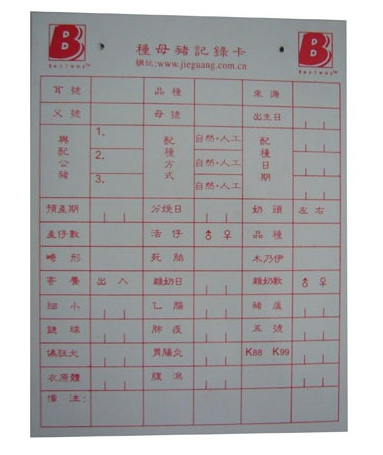 B
B
種母豬記錄卡
網址:www.jieguang.com.cn
耳號 品種 來源
父號 母號 出生日
與配公豬 1. 2. 3. 配種方式 自然·人工 自然·人工 自然·人工 配種日期
預產期 分娩日 奶頭 左右
產仔數 活仔 ♂ ♀ 品種
畸形 死胎 木乃伊
寄養 出 入 離奶日 離奶數 ♂ ♀
細小 乙腦 豬瘟
鏈球 肺疫 五號
偽狂犬 胃腸炎 K88 K99
衣原體 腹瀉
備注: